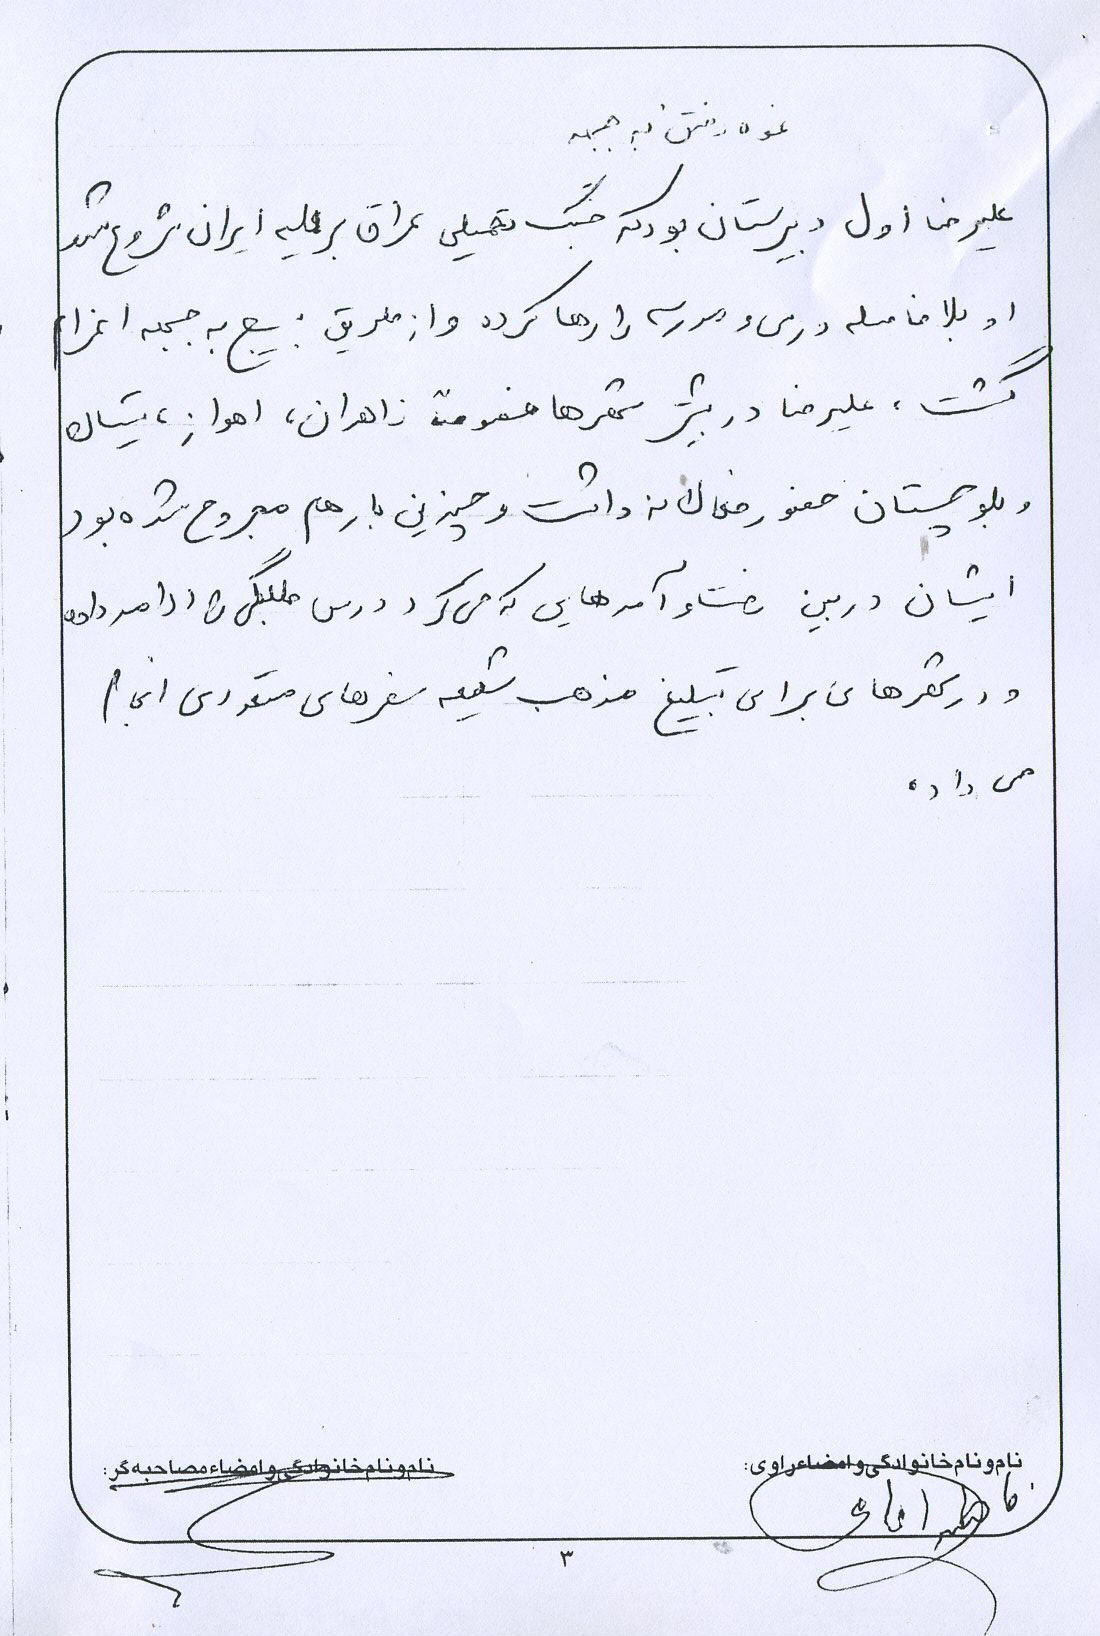 نحوه رفتن به جبهه
علیرضا اول دبیرستان بود که جنگ تحمیلی عراق بر علیه ایران شروع شد
او بلافاصله درس و مدرسه را رها کرده و از طریق بسیج به جبهه اعزام
گشت، علیرضا در بیشتر شهرها خصوصاً زاهدان، اهواز، سیستان
و بلوچستان حضور فعالانه داشت و چندین بار هم مجروح شده بود
ایشان در بین رفت و آمدهایی که می کرد درس طلبگی را ادامه داده
و در شهرهای برای تبلیغ مذهب شیعه سفرهای متعددی انجام
می داد.
نام و نام خانوادگی و امضاء راوی:
نام و نام خانوادگی و امضاء مصاحبه گر:
فاطمه
۳